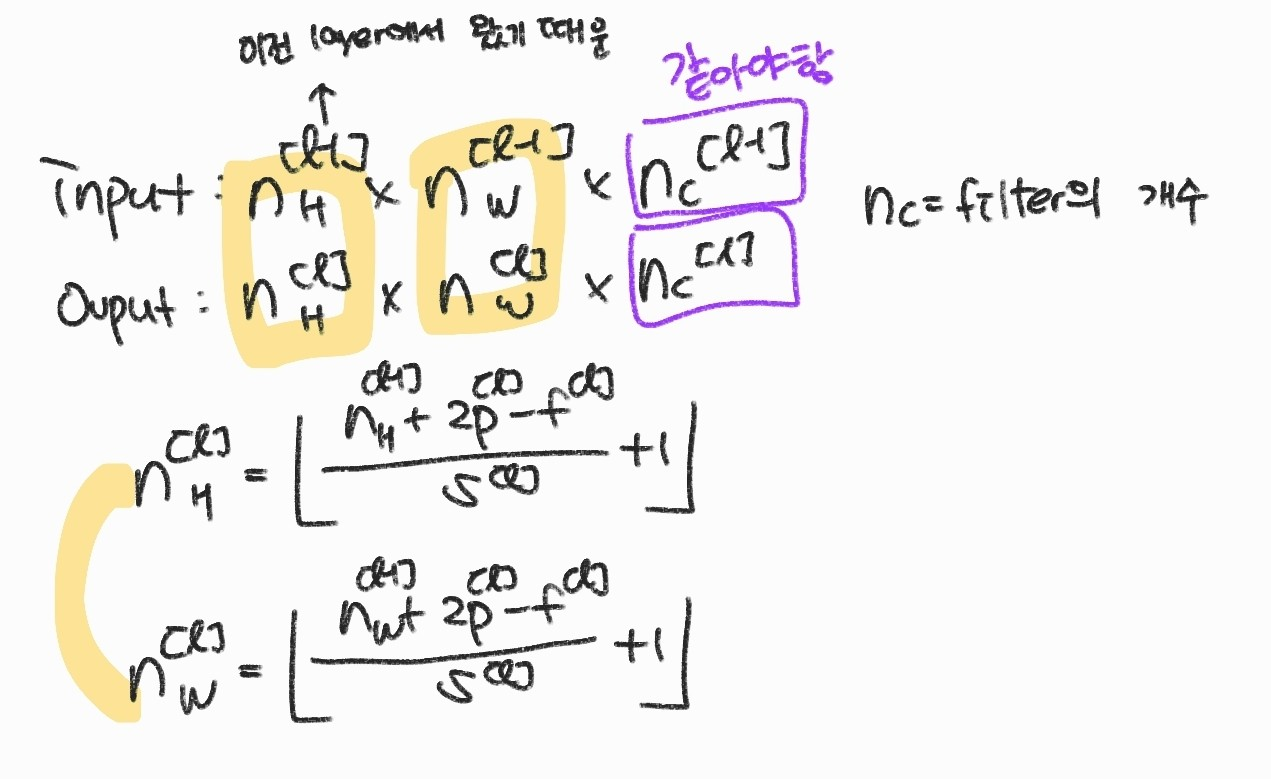 이전 layer에서 왔기 때문
같아야함
input : n_H^[l-1] × n_W^[l-1] × n_C^[l-1]
n_C = filter의 개수
Ouput : n_H^[l] × n_W^[l] × n_C^[l]
n_H^[l] = ⌊ (n_H^[l-1] + 2p^[l] - f^[l]) / s^[l] + 1 ⌋
n_W^[l] = ⌊ (n_W^[l-1] + 2p^[l] - f^[l]) / s^[l] + 1 ⌋